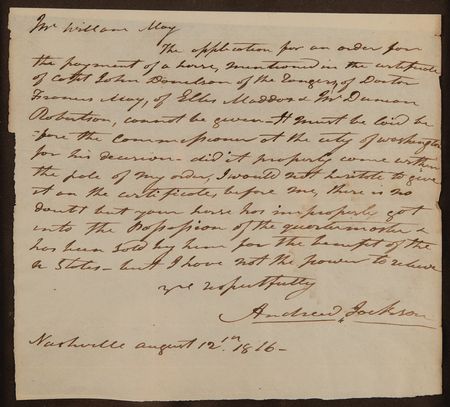 Mr William May
The application for an order for
the payment of a horse, mentioned in the certificate
of Capt John Donelson of the Surgery of Doctor
Francis May, of Ellis Maddox & Mr Duncan
Robertson, cannot be given. It must be laid be
-fore the Commissioner at the city of washington
for his decision - did it properly come within
the pale of my order, I would not hesitate to give
it on the certificates before me, there is no
doubt but your horse has improperly got
into the Possession of the quartermaster &
has been sold by him for the benefit of the
u States - but I have not the power to relieve
yrs respectfully
Andrew Jackson
Nashville august 12th 1816 -